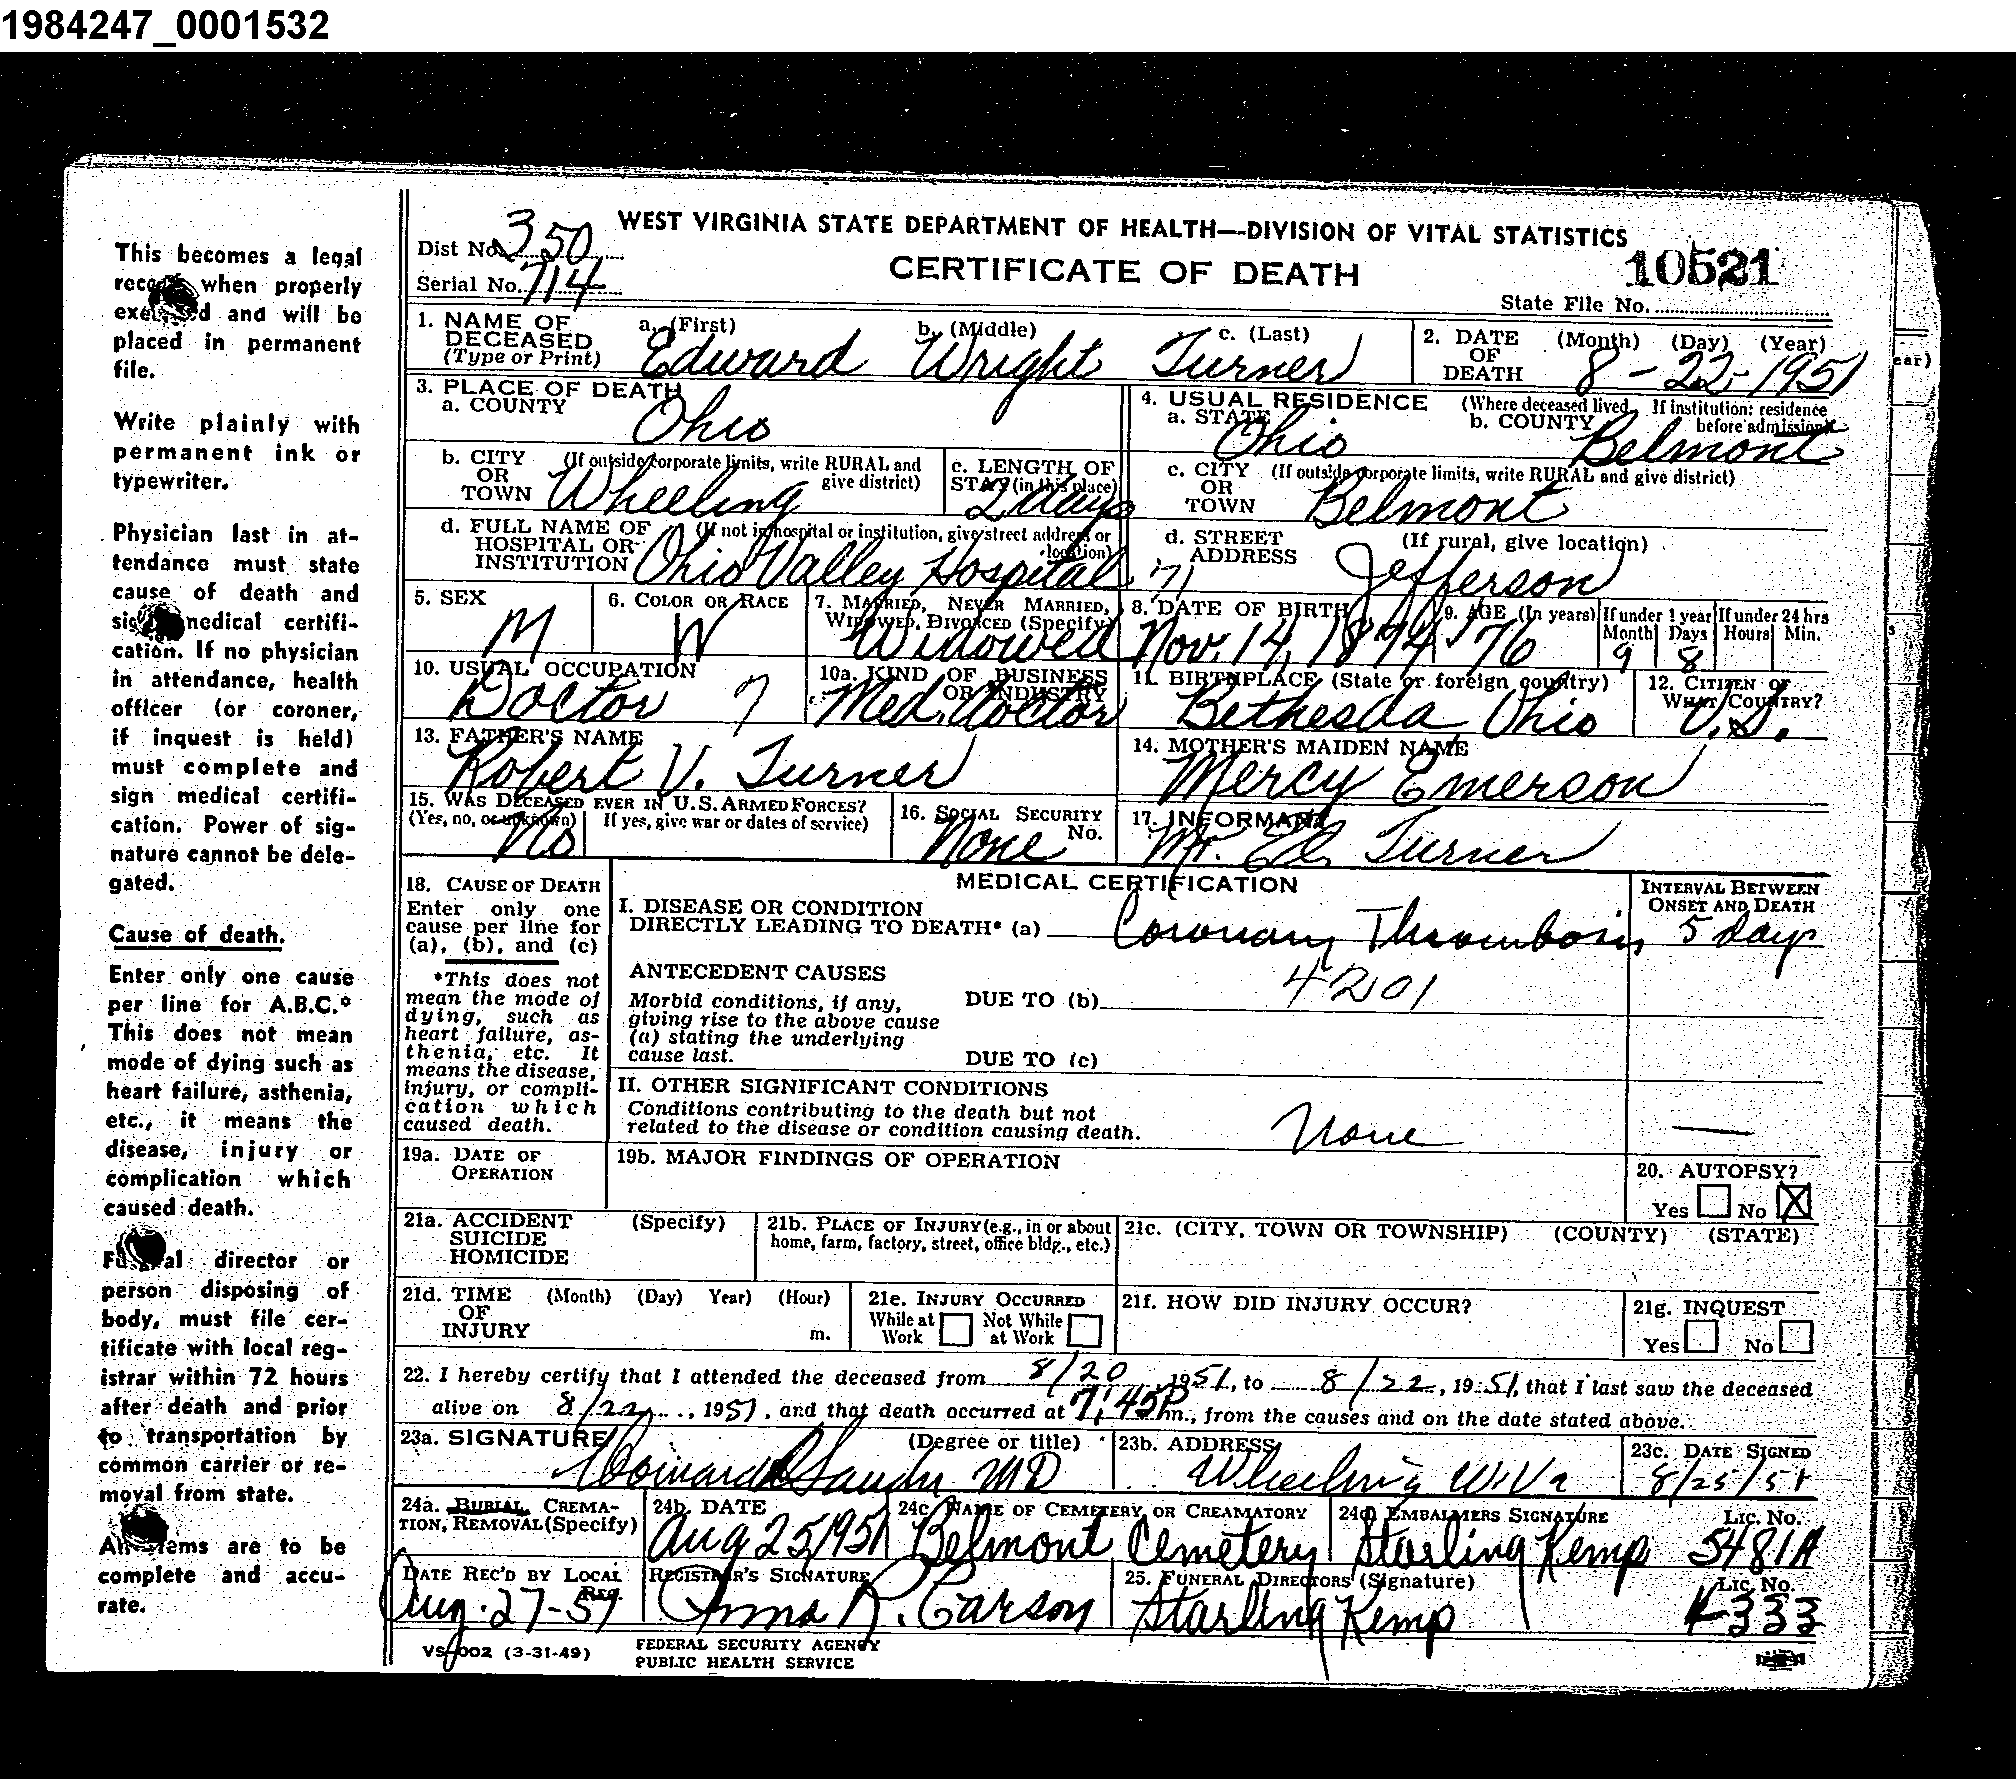 1984247_0001532
This becomes a legal
when properly
and will be
placed in permanent
file.
Write plainly with
permanent ink or
typewriter.
Physician last in at-
tendance must state
cause of death and
medical certifi-
cation. If no physician
in attendance, health
officer (or coroner,
if inquest is held)
must complete and
sign medical certifi-
cation. Power of sig-
nature cannot be dele-
gated.
Cause of death.
Enter only one cause
per line for A.B.C.*
This does not mean
mode of dying such as
heart failure, asthenia,
etc., it means the
disease, injury or
complication which
caused death.
director or
person disposing of
body, must file cer-
tificate with local reg-
istrar within 72 hours
after death and prior
to transportation by
common carrier or re-
moval from state.
are to be
complete and accu-
rate.
WEST VIRGINIA STATE DEPARTMENT OF HEALTH—DIVISION OF VITAL STATISTICS
Dist No. 350
CERTIFICATE OF DEATH
10521
Serial No. 714
State File No.
1. NAME OF DECEASED (Type or Print) a. (First) Edward b. (Middle) Wright c. (Last) Turner
2. DATE OF DEATH (Month) (Day) (Year) 8-22-1951
3. PLACE OF DEATH
a. COUNTY Ohio
4. USUAL RESIDENCE (Where deceased lived. If institution: residence before admission)
a. STATE Ohio b. COUNTY Belmont
b. CITY OR TOWN (If outside corporate limits, write RURAL and give district) Wheeling
c. LENGTH OF STAY (in this place) 2 days
c. CITY OR TOWN (If outside corporate limits, write RURAL and give district) Belmont
d. FULL NAME OF HOSPITAL OR INSTITUTION (If not in hospital or institution, give street address or location) Ohio Valley Hospital 71
d. STREET ADDRESS (If rural, give location) Jefferson
5. SEX M
6. COLOR OR RACE W
7. MARRIED, NEVER MARRIED, WIDOWED, DIVORCED (Specify) Widowed
8. DATE OF BIRTH Nov. 14, 1874
9. AGE (In years) 76 If under 1 year Month 9 Days 8 If under 24 hrs Hours Min.
10. USUAL OCCUPATION Doctor 7
10a. KIND OF BUSINESS OR INDUSTRY Med. Doctor
11. BIRTHPLACE (State or foreign country) Bethesda Ohio
12. CITIZEN OF WHAT COUNTRY? U.S.
13. FATHER'S NAME Robert V. Turner
14. MOTHER'S MAIDEN NAME Mercy Emerson
15. WAS DECEASED EVER IN U.S. ARMED FORCES? (Yes, no, or unknown) No If yes, give war or dates of service)
16. SOCIAL SECURITY No. None
17. INFORMANT Mr. Ed Turner
MEDICAL CERTIFICATION
18. CAUSE OF DEATH
Enter only one
cause per line for
(a), (b), and (c)
*This does not
mean the mode of
dying, such as
heart failure, as-
thenia, etc. It
means the disease,
injury, or compli-
cation which
caused death.
I. DISEASE OR CONDITION
DIRECTLY LEADING TO DEATH* (a) Coronary Thrombosis
INTERVAL BETWEEN ONSET AND DEATH
5 days
ANTECEDENT CAUSES
Morbid conditions, if any,
giving rise to the above cause
(a) stating the underlying
cause last.
4201
DUE TO (b)
DUE TO (c)
II. OTHER SIGNIFICANT CONDITIONS
Conditions contributing to the death but not
related to the disease or condition causing death. None —
19a. DATE OF OPERATION
19b. MAJOR FINDINGS OF OPERATION
20. AUTOPSY?
Yes No X
21a. ACCIDENT SUICIDE HOMICIDE (Specify)
21b. PLACE OF INJURY (e.g., in or about home, farm, factory, street, office bldg., etc.)
21c. (CITY, TOWN OR TOWNSHIP) (COUNTY) (STATE)
21d. TIME OF INJURY (Month) (Day) Year) (Hour) m.
21e. INJURY OCCURRED While at Work Not While at Work
21f. HOW DID INJURY OCCUR?
21g. INQUEST Yes No
22. I hereby certify that I attended the deceased from 8/20, 1951, to 8/22, 1951, that I last saw the deceased
alive on 8/22, 1951, and that death occurred at 7:45P m., from the causes and on the date stated above.
23a. SIGNATURE (Degree or title) MD
23b. ADDRESS Wheeling W.Va
23c. DATE SIGNED 8/25/51
24a. BURIAL, CREMATION, REMOVAL (Specify)
24b. DATE Aug 25 1951
24c. NAME OF CEMETERY OR CREAMATORY Belmont Cemetery
24d. EMBALMERS SIGNATURE Starling Kemp Lic. No. 5481A
DATE REC'D BY LOCAL REG. Aug. 27-51
REGISTRAR'S SIGNATURE Anna R. Carson
25. FUNERAL DIRECTORS (Signature) Starling Kemp Lic. No. 333
VS-002 (3-31-49)
FEDERAL SECURITY AGENCY
PUBLIC HEALTH SERVICE
ear)